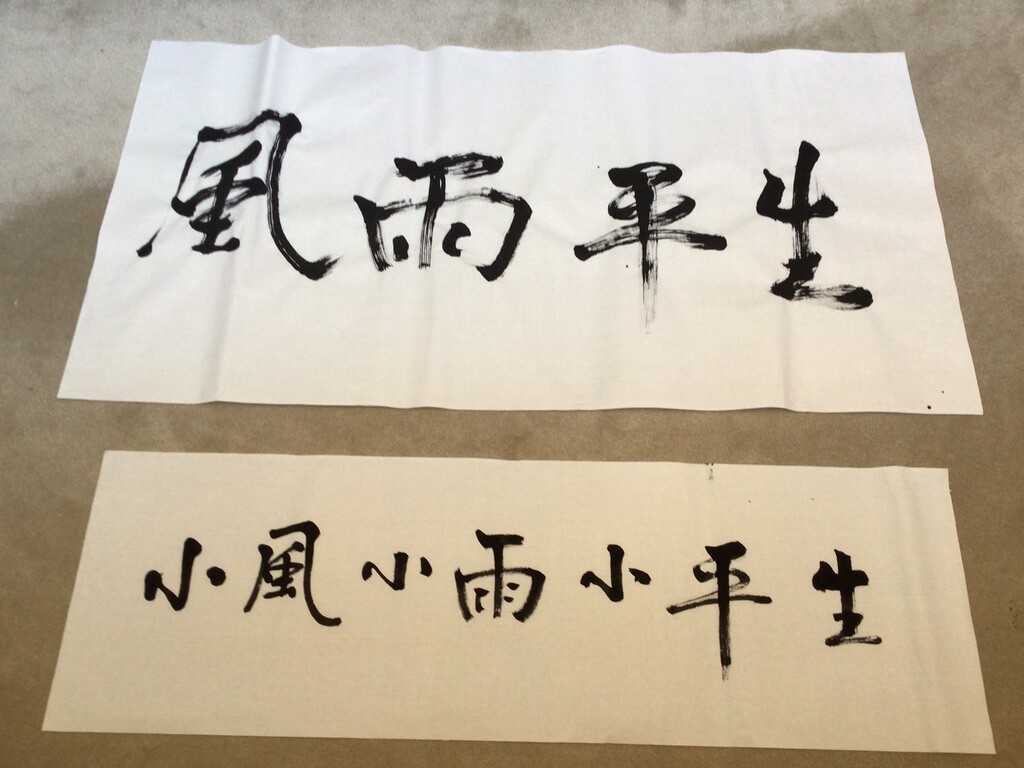 風雨平生
小風小雨小平生